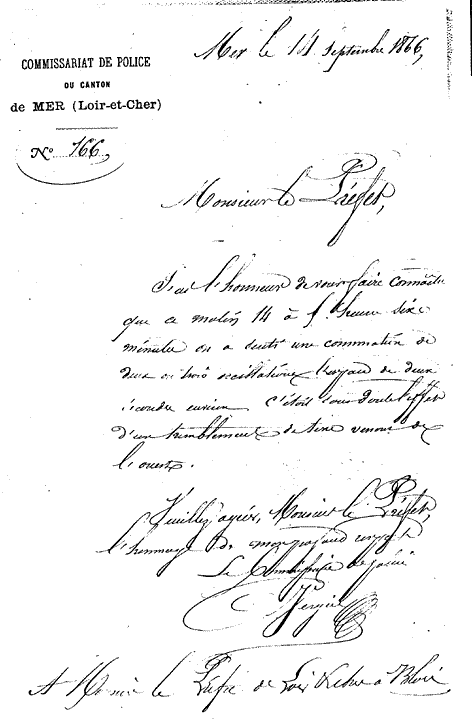 Mer le 14 septembre 1866,
COMMISSARIAT DE POLICE
DU CANTON
de MER (Loir-et-Cher)
N° 166,
Monsieur le Préfet,
J'ai l'honneur de vous faire connaître
que ce matin 14 à 5 heure dix
minutes on a senti une commotion de
deux ou trois oscillations de deux
secondes environ c'était sans doute l'effet
d'un tremblement de terre venant de
l'ouest.
Veuillez agréer, Monsieur le Préfet,
l'hommage de mon profond respect
Le Commissaire de police
A Monsieur le Préfet de Loir et Cher a Blois